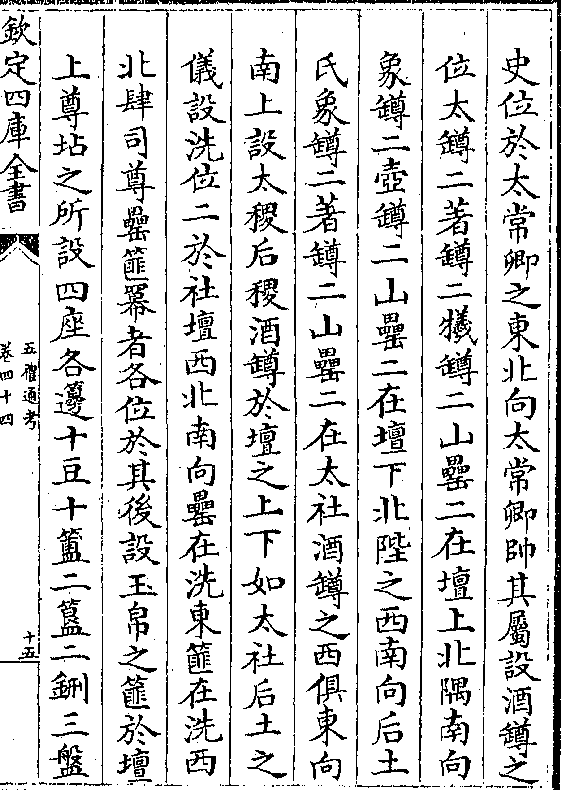 史位於太常卿之東北向太常卿帥其屬設酒罇之
位太罇二著罇二犧罇二山罍二在壇上北隅南向
象罇二壺罇二山罍二在壇下北陛之西南向后土
氏象罇二著罇二山罍二在太社酒罇之西俱東向
南上設太稷后稷酒罇於壇之上下如太社后土之
儀設洗位二於社壇西北南向罍在洗東篚在洗西
北肆司尊罍篚羃者各位於其後設玉帛之篚於壇
上尊坫之所設四座各籩十豆十簠二簋二鉶三盤
欽定四庫全書
五禮通考
卷四十四
十五